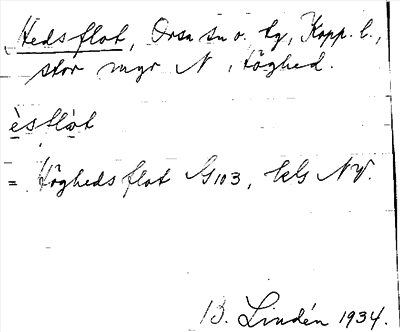 Hedsflot, Orsa sn o. tg, Kopp. l.,
stor myr N i Höghed.
èsflòt
= Höghedsflot G103, kls NV.
B. Lindén 1934.